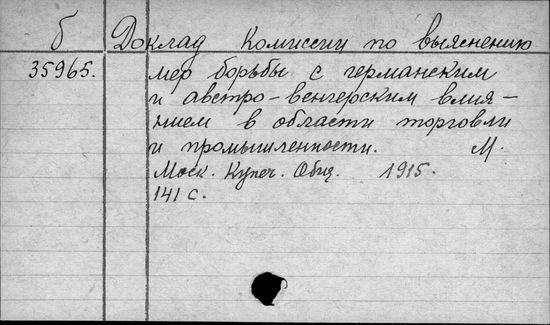 б Доклад Комиссии по выяснению
35965. мер борьбы с германским
и австро-венгерским влия-
нием в области торговли
и промышленности. М.
Моск. Купеч. Общ. 1915.
141 с.